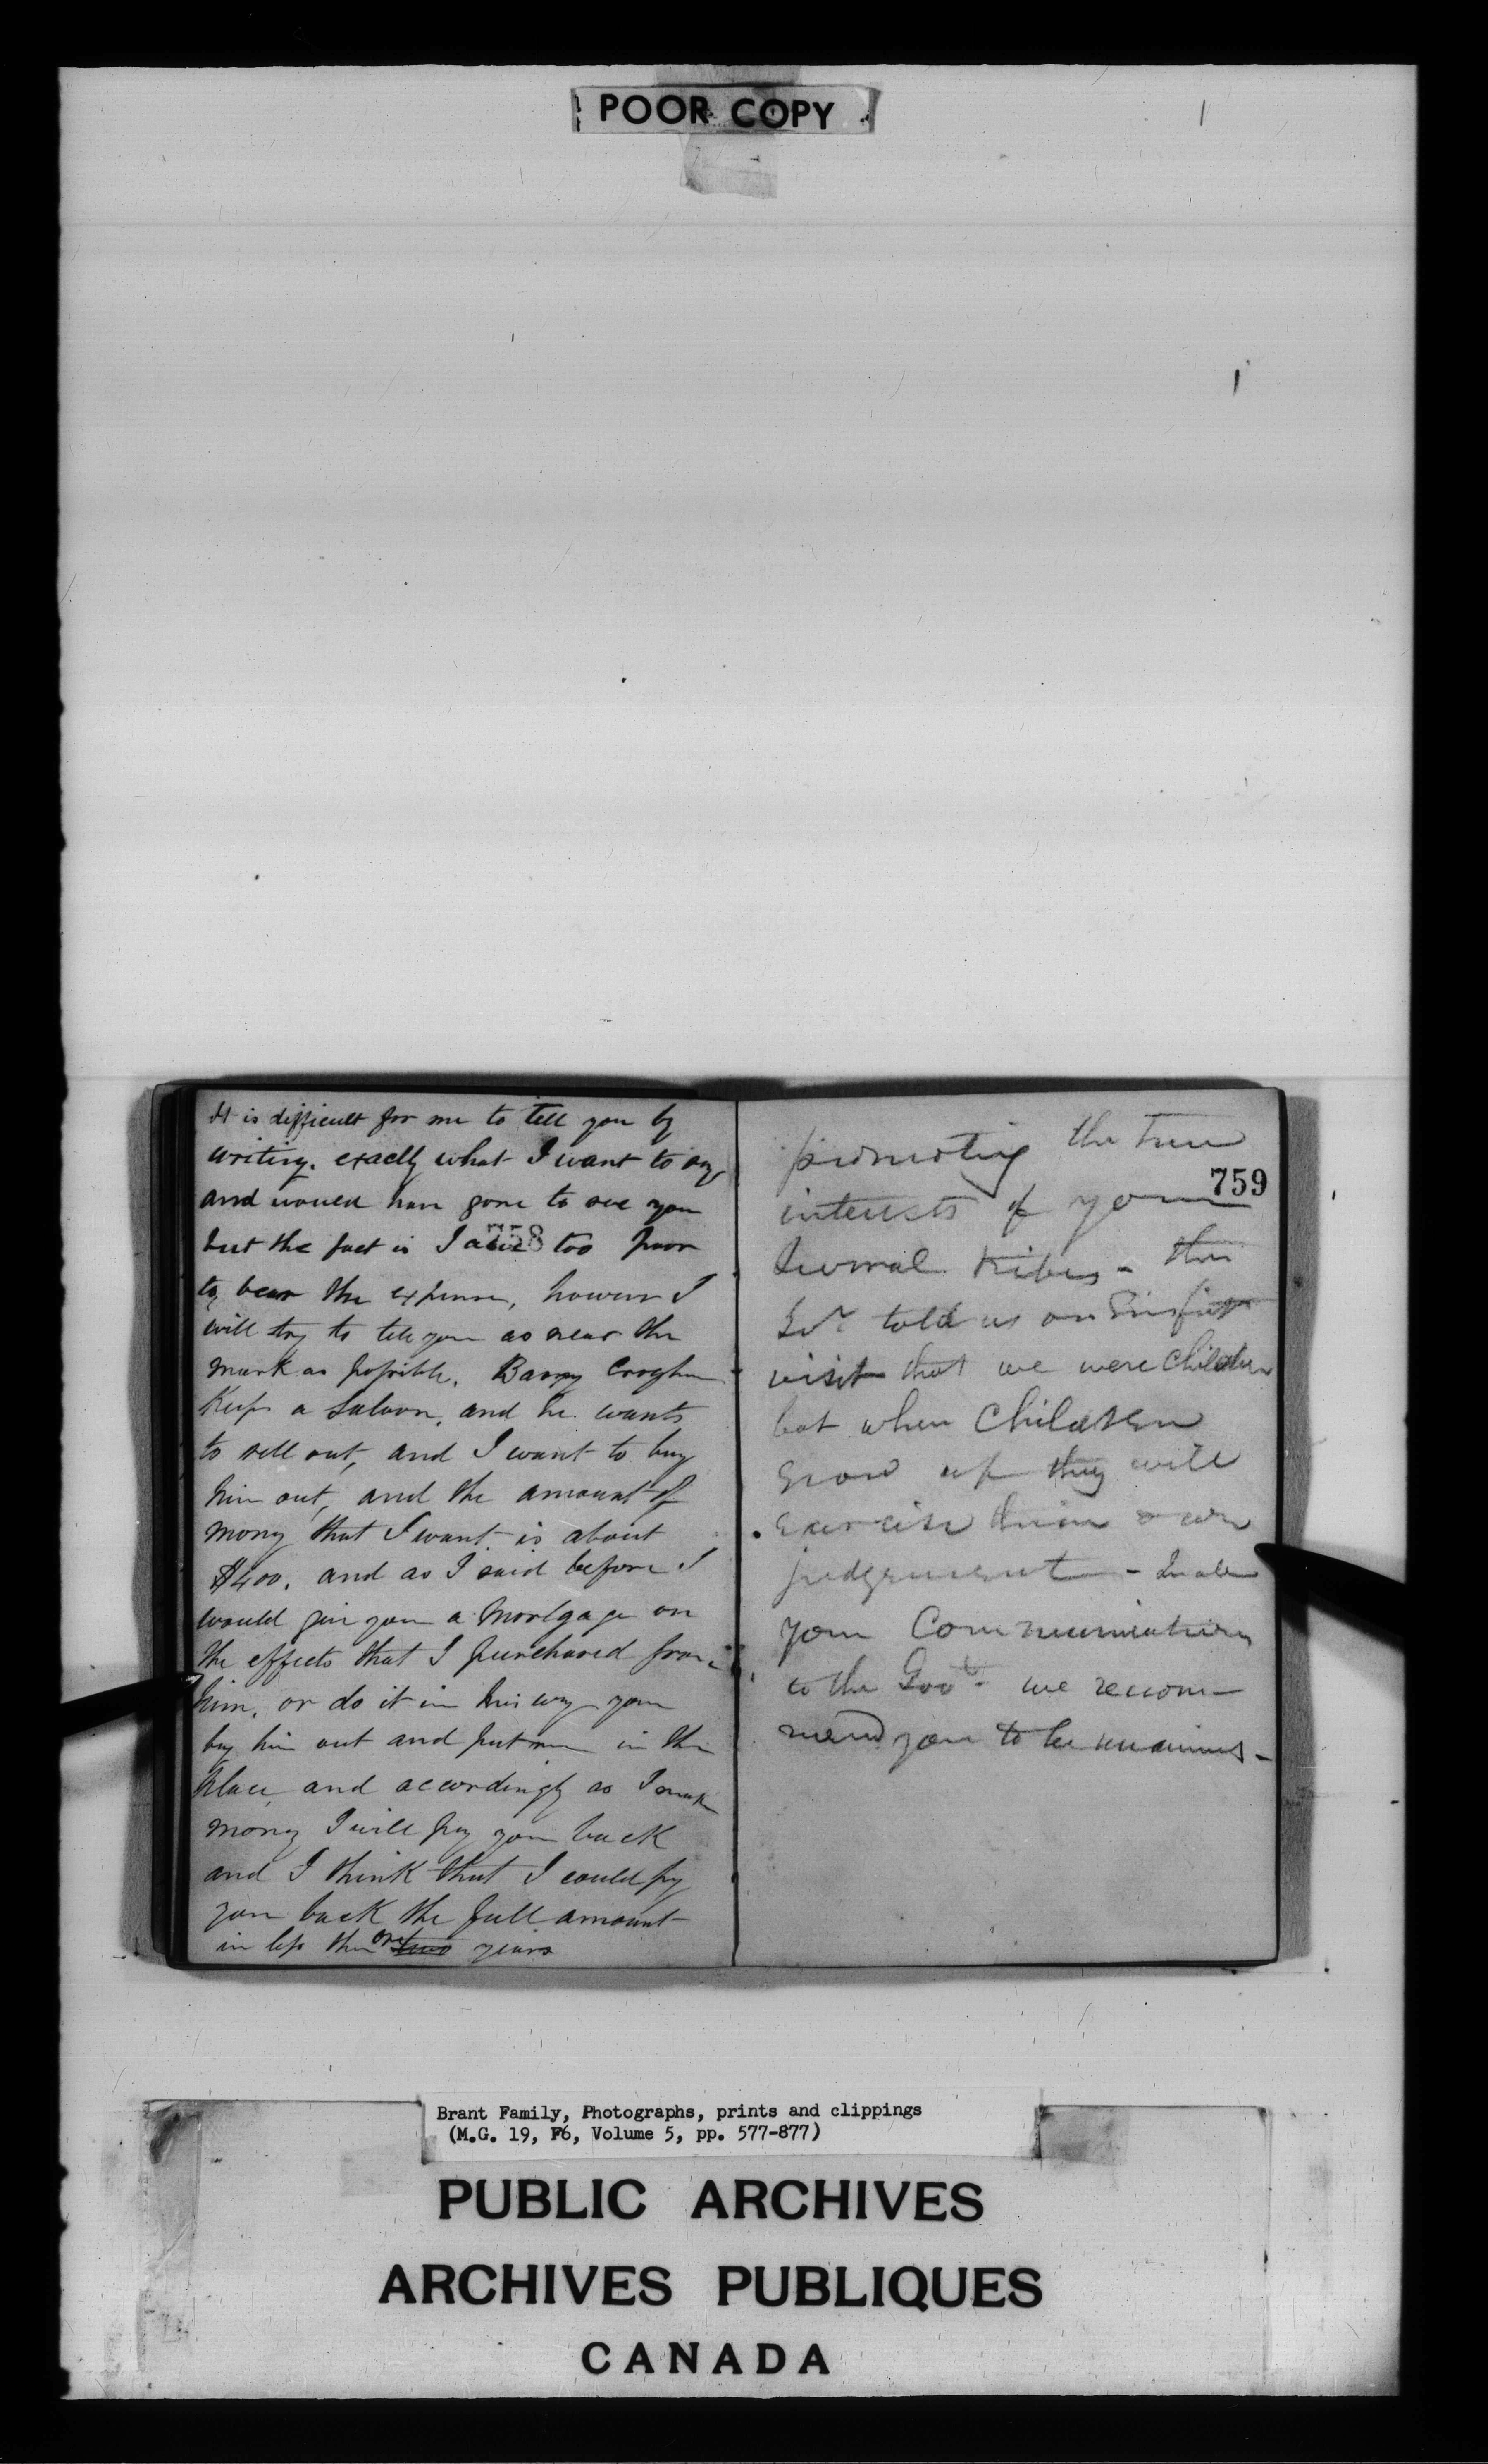 POOR COPY
It is difficult for me to tell you by
writing. exactly what I want to say
and would have gone to see you
but the fact is I am too poor
758
to bear the expense, however I
will try to tell you as near the
mark as possible. Barry Croghan
Keeps a Saloon, and he wants
to sell out, and I want to buy
him out, and the amount of
mony that I want is about
$400. and as I said before I
would give you a Mortgage on
the effects that I purchased from
him, or do it in this way you
buy him out and put me in the
place and accordingly as I make
mony I will pay you back
and I think that I could pay
you back the full amount
in less then one two years
promoting the true
759
interests of your
several tribes - the
Govr told us on first
visit that we were Children
but when Children
grow up they will
exercise their own
judgement - In all
your Communications
to the Govt we recom-
mend you to be unanimous -
Brant Family, Photographs, prints and clippings
(M.G. 19, F6, Volume 5, pp. 577-877)
PUBLIC ARCHIVES
ARCHIVES PUBLIQUES
CANADA